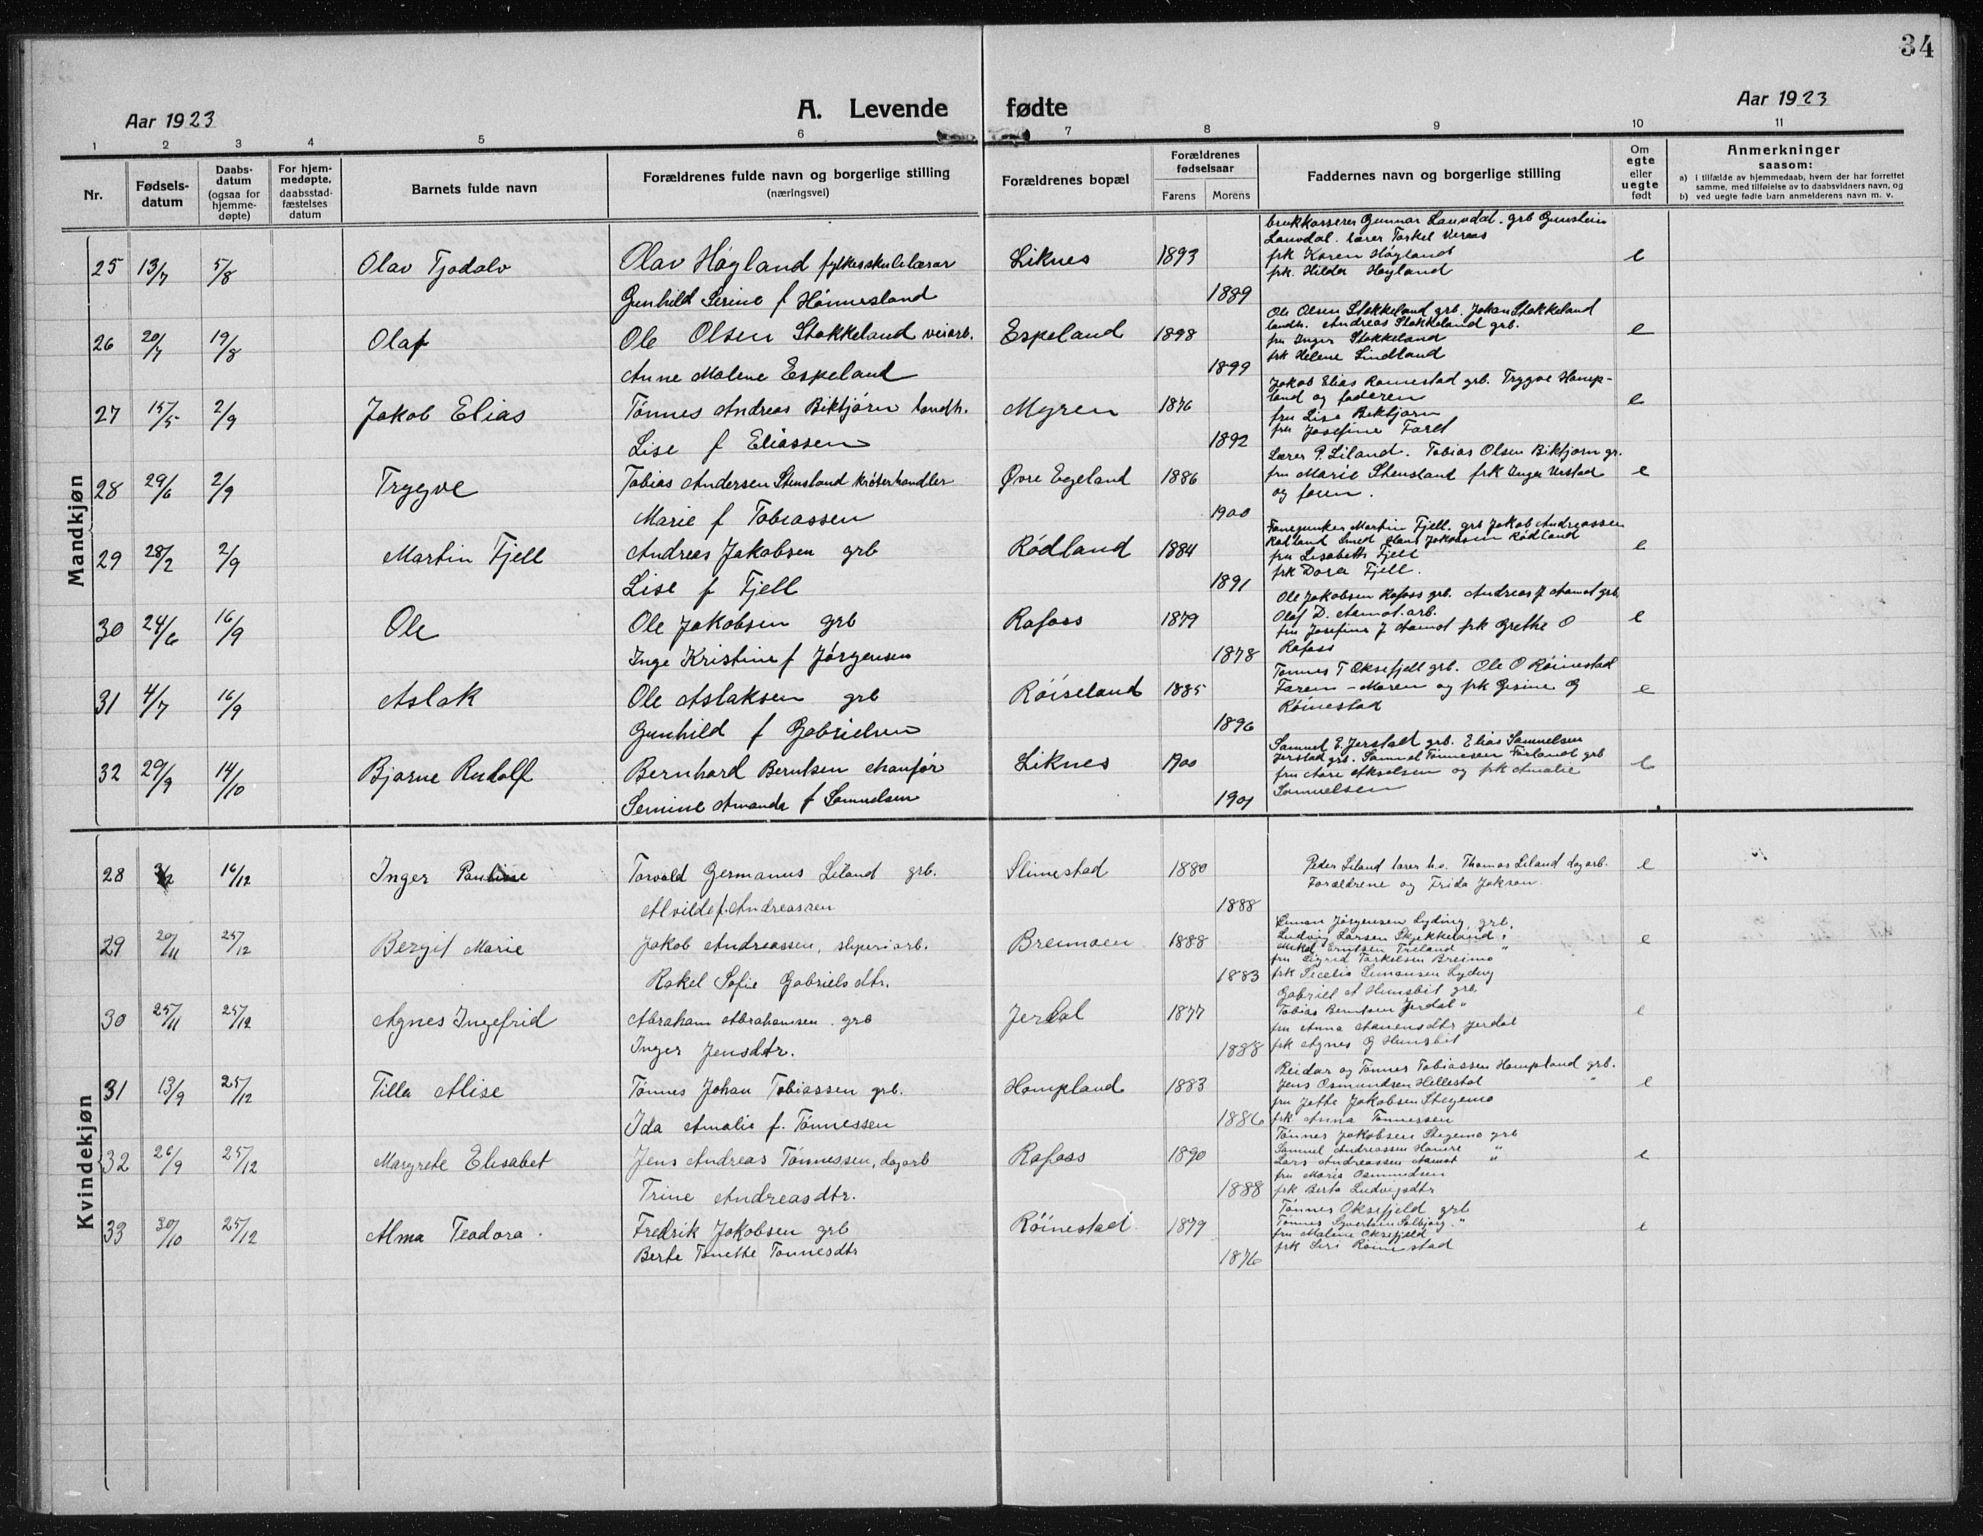 34
Aar 1923
A. Levende fødte
Aar 1923
1 2 3 4 5 6 7 8 9 10 11
Nr.
Fødsels-
datum
Daabs-
datum
(ogsaa for
hjemme-
døpte)
For hjem-
medøpte,
daabsstad-
fæstelses
datum
Barnets fulde navn
Forældrenes fulde navn og borgerlige stilling
(næringsvei)
Forældrenes bopæl
Forældrenes
fødselsaar
Farens Morens
Faddernes navn og borgerlige stilling
Om
egte
eller
uegte
født
Anmerkninger
saasom:
a) i tilfælde av hjemmedaab, hvem der har forrettet
samme, med tilføielse av to daabsvidners navn, og
b) ved uegte fødte barn anmelderens navn m. v.
Mandkjøn
25 13/7 5/8 Olav Tjodolv Olav Høgland fylkesskulelærar Liknes 1893 e
Gunhild Serine f Hønnesland 1889
brukkasserer Gunnar Lauvdal. grb Gunstein
Lauvdal. lærer Torkel
frk Karen Høgland
frk. Hilda Høgland
26 20/7 19/8 Olaf Ole Olsen Stokkeland veiarb. Espeland 1898 e
Anne Malene Espeland 1899
Ole Olsen Stokkeland grb. Johan Stokkeland
landh. Andreas Stokkeland grb.
fru Inger Stokkeland
frk Helene Lindland
27 15/5 2/9 Jakob Elias Tønnes Andreas Bikkjørn landh. Myren 1876 e
Lise f Eliassen 1892
Jakob Elias Rørnestad grb. Trygve Homp-
land og faderen
fru Lise Bikkjørn
fru Josefine Faret
28 29/6 2/9 Trygve Tobias Andersen Stensland krøterhandler Øvre Egeland 1886 e
Marie f Tobiassen 1900
Lærer P. Liland. Tobias Olsen Bikkjørn gr.
fru Marie Stensland frk Inger
og faren.
29 28/2 2/9 Martin Fjell Andreas Jakobsen grb Rødland 1884 e
Lise f Fjell 1891
Fanejunker Martin Fjell. grb Jakob Andreassen
Rødland Smed Hans Jakobsen Rødland
fru Lisabeth Fjell
frk Dora Fjell.
30 24/6 16/9 Ole Ole Jakobsen grb Rafoss 1879 e
Inge Kristine f Jørgensen 1878
Ole Jakobsen Rafoss grb. Andreas J Aamot grb.
Olaf D. Aamot. arb.
fru Josefine J Aamot frk Grethe O
Rafoss
31 4/7 16/9 Aslak Ole Aslaksen grb Røiseland 1885 e
Gunhild f Gabrielsen 1896
Tønnes T Oksefjell grb. Ole O Røinestad
Faren – Moren og frk Gesine G
Røinestad
32 29/9 14/10 Bjarne Rudolf Bernhard Berntsen chauffør Liknes 1900 e
Semine Amanda f Samuelsen 1901
Samuel E. Jerstad grb. Elias Samuelsen
Jerstad grb. Samuel Tønnesen Førlandt grb
fru Aase Akselsen og frk Amalie
Samuelsen
Kvindekjøn
28 16/12 Inger Pauline Torvald Germanus Liland grb. Slimestad 1880 e
Alvilde f. Andreassen 1888
Peder Liland lærer h.o. Thomas Liland dagarb.
Forældrene og Frida Jakson.
29 20/11 25/12 Bergit Marie Jakob Andreassen, sliperiarb. Breimoen 1888 e
Rakel Sofie Gabrielsdtr. 1883
Simon Jørgensen Lyding grb.
Ludvig Larsen Skjekkeland "
Mikal Erntsen Treland "
fru Sigrid Torkelsen Breimo
frk Secelia Simonsen Lyding
30 25/11 25/12 Agnes Ingefrid Abraham Abrahamsen grb Jerdal 1877 e
Inger Jensdtr. 1888
Gabriel A Hunsbit grb
Tobias Berntsen Jerdal "
fru Anna Aanensdtr Jerdal
frk Agnes G Hunsbit
31 13/9 25/12 Tilla Alise Tønnes Johan Tobiassen grb. Hompland 1883 e
Ida Amalie f. Tønnessen 1886
Reidar og Tønnes Tobiassen Hompland grb.
Jens Osmundsen Hellestøl "
fru Jothe Jakobsen Stegemo
frk Anna Tønnessen
32 26/9 25/12 Margrete Elisabet Jens Andreas Tønnessen, dagarb Rafoss 1890 e
Trine Andreasdtr. 1888
Tønnes Jakobsen Stegemo grb
Samuel Andreassen "
Lars Andreassen Aamot "
fru Maria Osmundsen
frk Berta Ludvigsdtr
33 30/10 25/12 Alma Teodora. Fredrik Jakobsen grb Røinestad 1879 e
Berte Tonette Tønnesdtr 1876
Tønnes Oksefjeld grb
Tønnes Syvertsen Solbjørg "
fru Malene Oksefjeld
frk Siri Røinestad